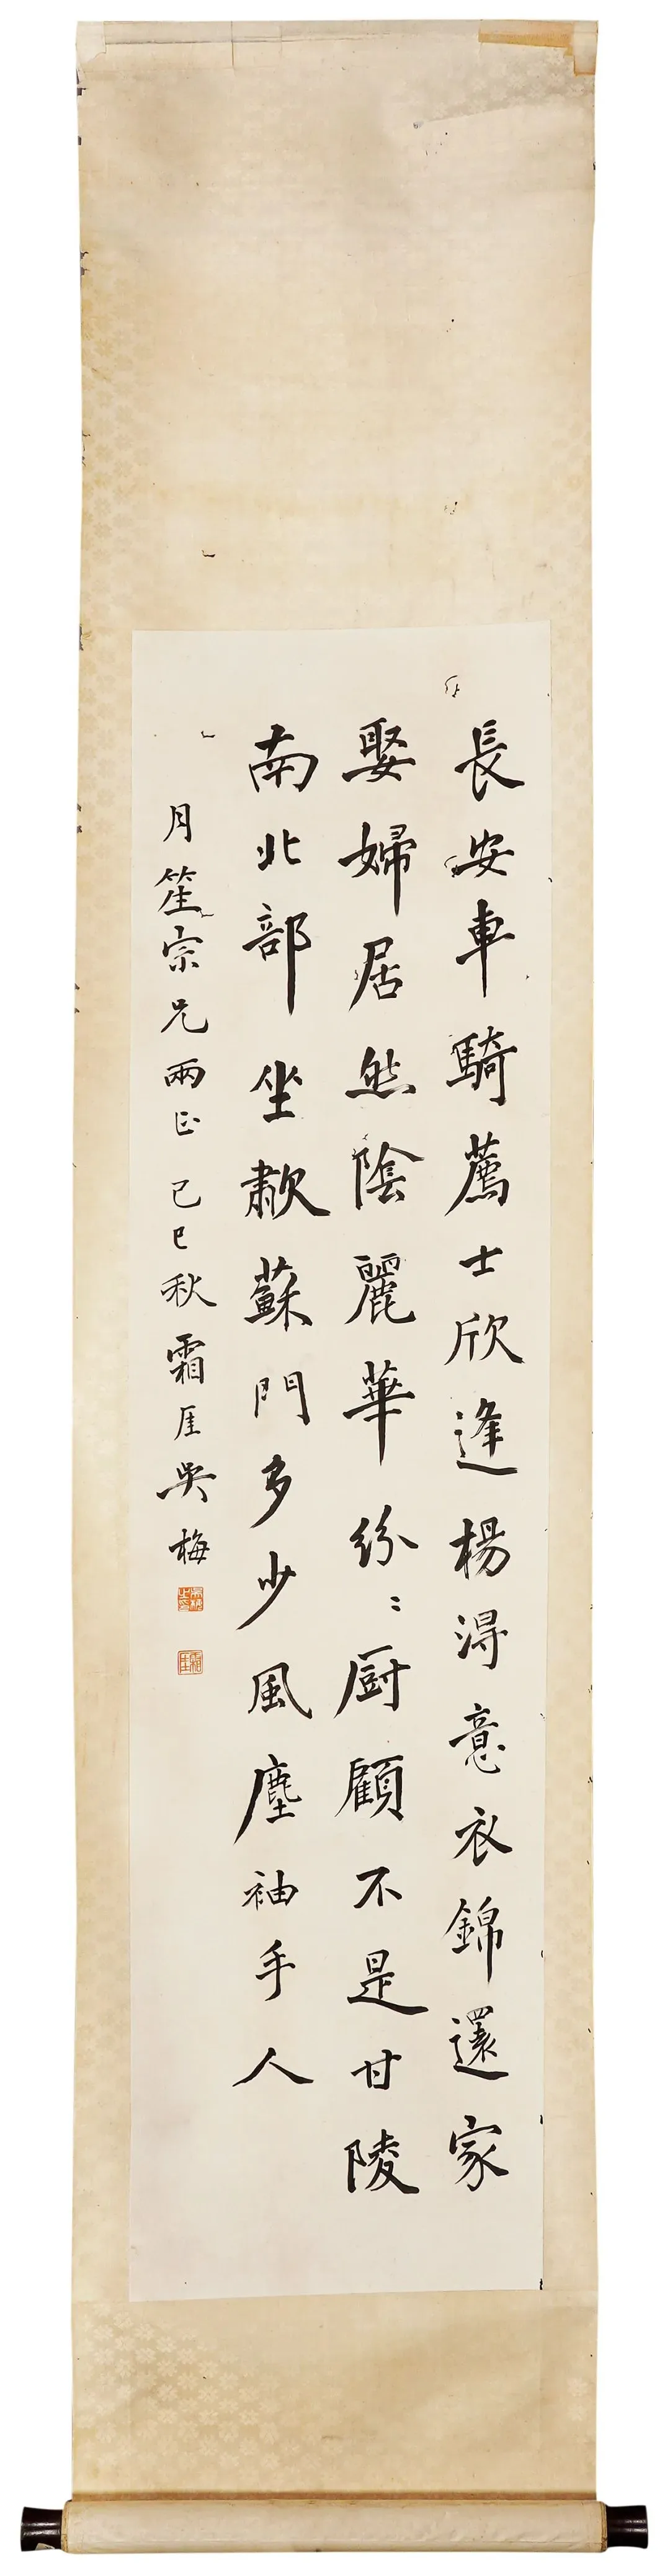 長安車騎薦士欣逢楊得意衣錦還家
娶婦居然陰麗華紛〻厨顧不是甘陵
南北部坐歗蘇門多少風塵袖手人
月笙宗兄兩正己巳秋霜厓吳梅
吳梅之印
霜厓